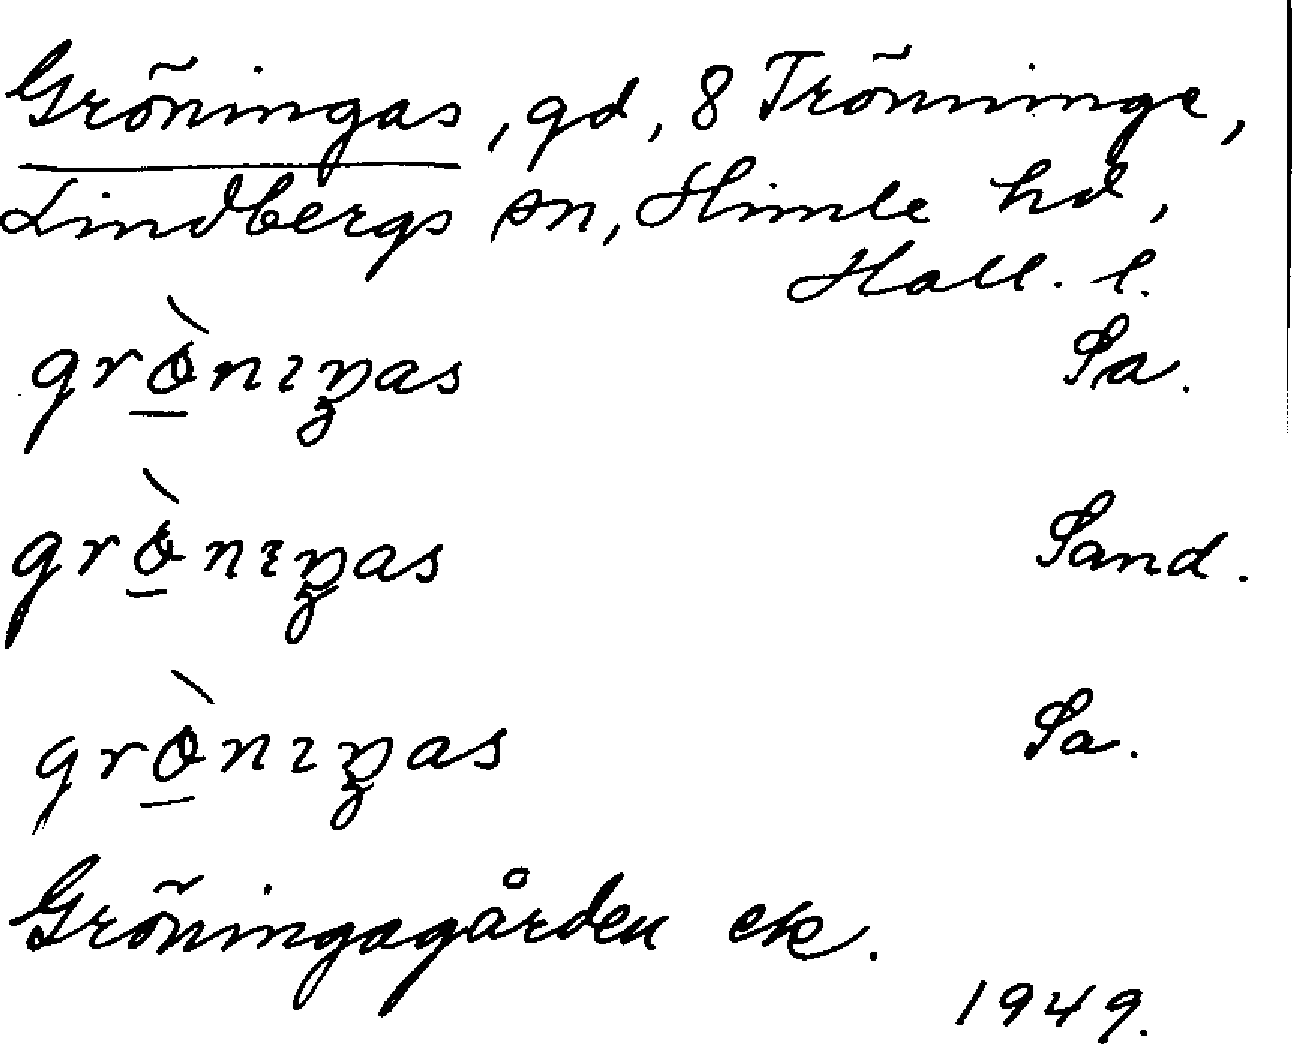 Gröningas, gd, 8 Trönninge,
Lindbergs sn, Himle hd,
Hall. l.
grö̀nıŋas Sa.
grö̀nıŋas Sand.
grö̀nıŋas Sa.
Gröningagården ek.
1949.